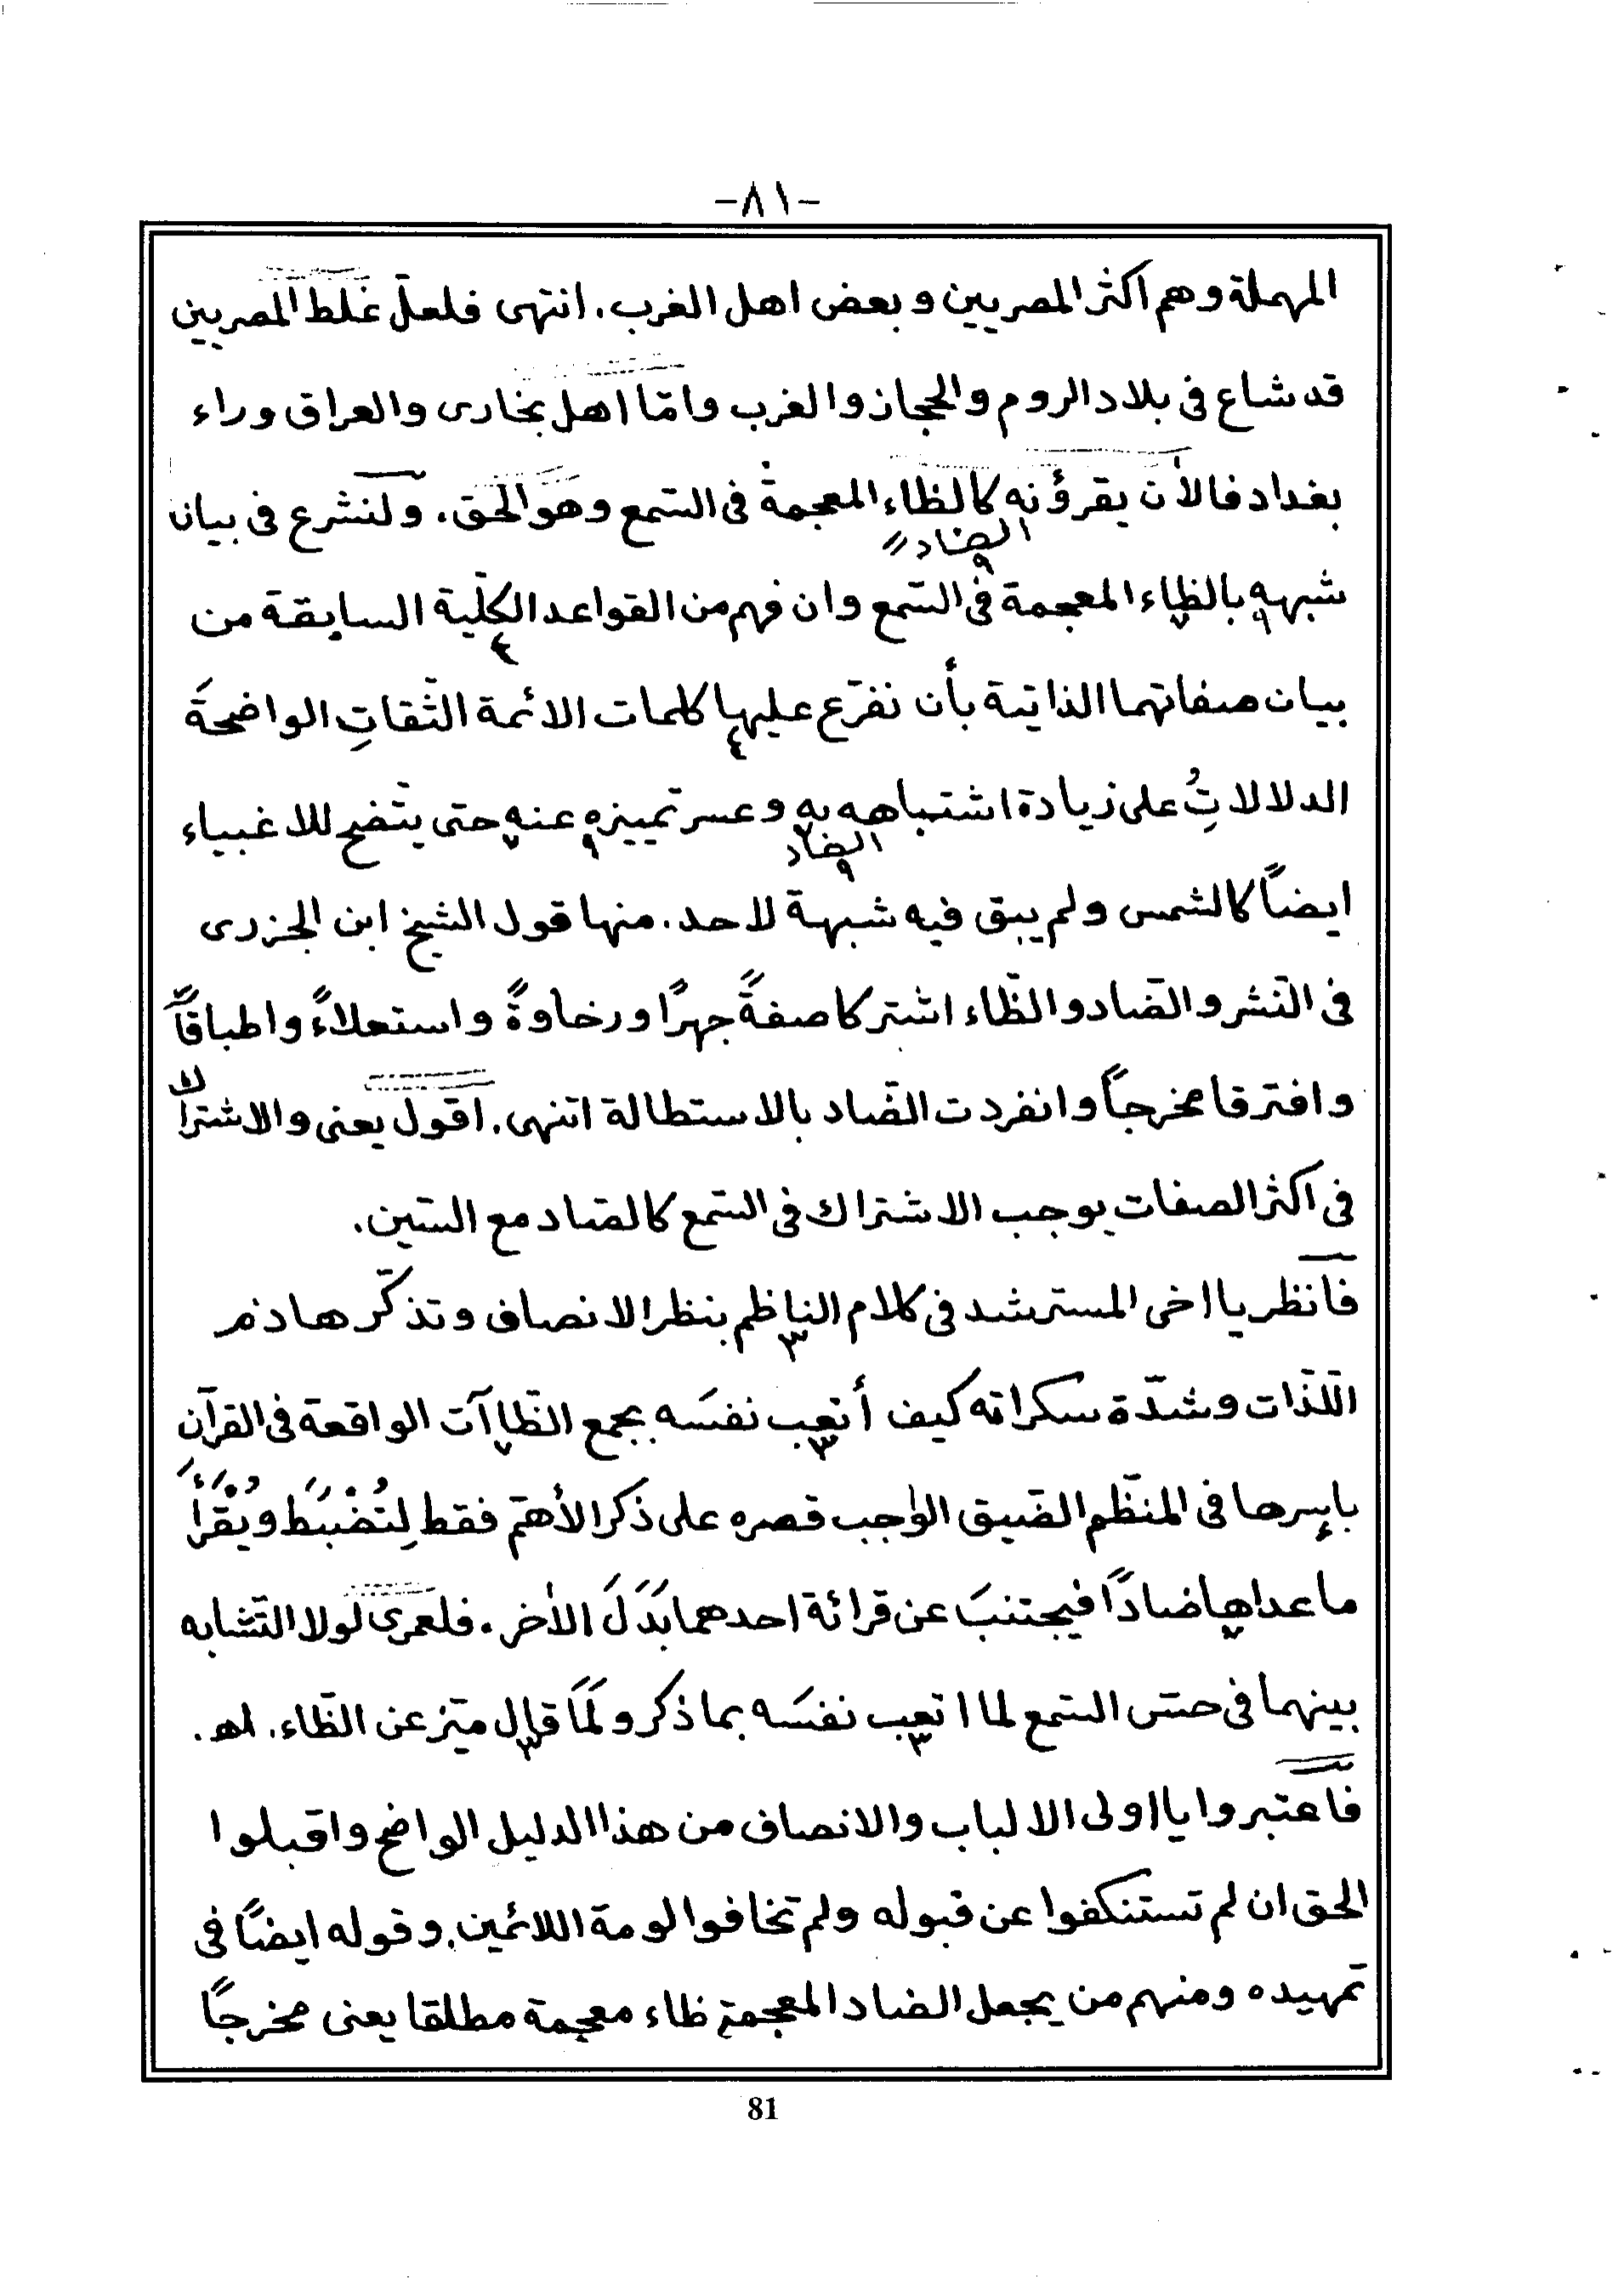 -٨١-
المهملة وهم اكثر المصريين وبعض اهل الغرب. انتهى فلعلّ غلط المصريين
قد شاع فى بلاد الروم والحجاز والغرب وامّا اهل بخارى والعراق وراء
بغداد فالأن يقرؤنه كالظاء المعجمة فى السّمع وهو الحق. ولنشرع فى بيان
الضاد
شبهه بالظاء المعجمة فى السّمع وان فهم من القواعد الكلّية السابقة من
بيان صفاتهما الذاتية بأن نفرّع عليها كلمات الائمة الثّقاتِ الواضحةَ
الدلالاتِ على زيادة اشتباهه به وعسر تمييزه عنه حتى يتّضح للاغبياء
الضاد
ايضاً كالشمس ولم يبق فيه شبهة لاحد. منها قول الشيخ ابن الجزرى
فى النّشر والضّاد والظّاء اشتركا صفةً جهرًا ورخاوةً واستعلاءً واطباقاً
وافترقا مخرجاً وانفردت الضّاد بالاستطالة انتهى. اقول يعنى والاشتراك
فى اكثر الصفات يوجب الاشتراك فى السّمع كالصّاد مع السّين.
فانظر يا اخى المسترشد فى كلام الناظم بنظر الانصاف وتذكّر هاذم
اللّذّات وشدّة سكراته كيف أتعب نفسَه بجمع الظّاآت الواقعة فى القرآن
باسرها فى المنظم الضّيق الواجب قصره على ذكر الأهمّ فقط لِتُضْبَطَ ويُقْرَأَ
ما عداها ضادًا فيجتنبَ عن قرائة احدهما بَدَلَ الأخر. فلعمرى لولا التّشابه
بينهما فى حسّ السّمع لما اتعب نفسَه بما ذكر ولَمَا قال ميّز عن الظّاء. اهـ.
فاعتبروا يا اولى الالباب والانصاف من هذا الدليل الواضح واقبلوا
الحق ان لم تستنكفوا عن قبوله ولم تخافوا لومة اللائمين. وقوله ايضًا فى
تمهيده ومنهم من يجعل الضاد المعجمة ظاء معجمة مطلقا يعنى مخرجاً
81